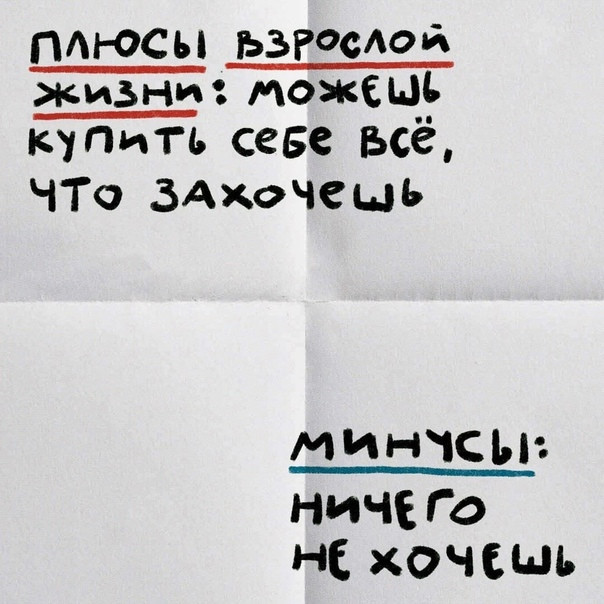 ПЛЮСЫ ВЗРОСЛОЙ
ЖИЗНИ: МОЖЕШЬ
КУПИТЬ СЕБЕ ВСЁ,
ЧТО ЗАХОЧЕШЬ
МИНУСЫ:
НИЧЕГО
НЕ ХОЧЕШЬ